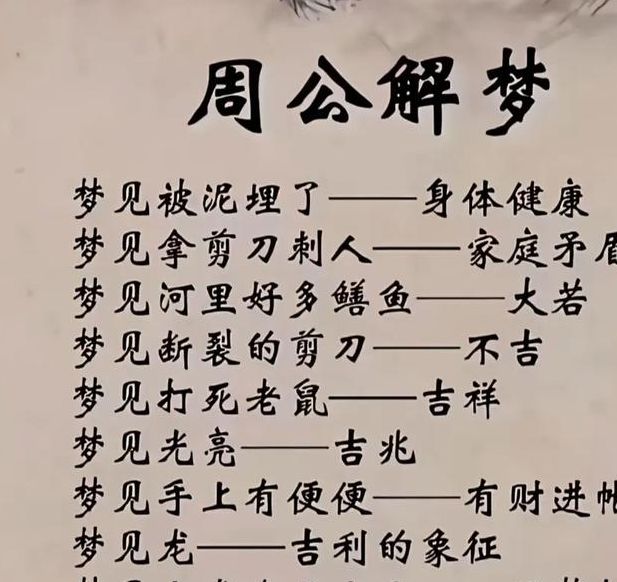 周公解梦
梦见被泥埋了——身体健康
梦见拿剪刀刺人——家庭矛盾
梦见河里好多鳝鱼——大若
梦见断裂的剪刀——不吉
梦见打死老鼠——吉祥
梦见光亮——吉兆
梦见手上有便便——有财进帐
梦见龙——吉利的象征